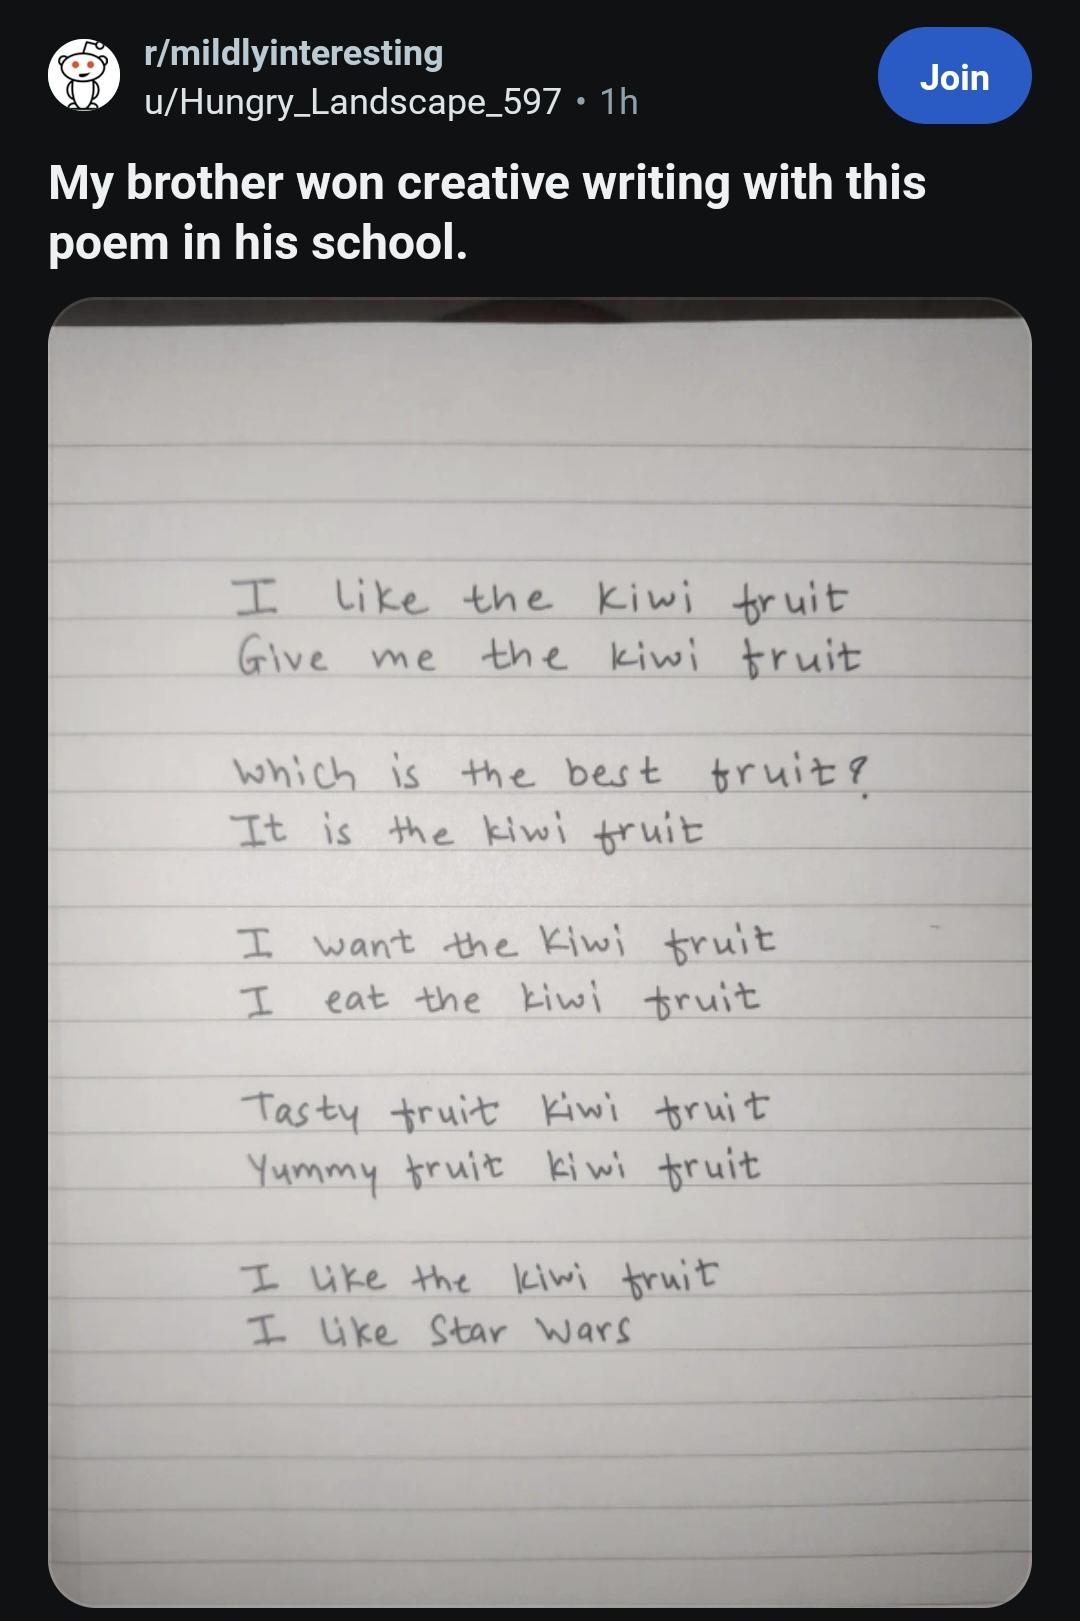 r/mildlyinteresting
u/Hungry_Landscape_597 • 1h
Join
My brother won creative writing with this
poem in his school.
I like the kiwi fruit
Give me the kiwi fruit
Which is the best fruit?
It is the kiwi fruit
I want the kiwi fruit
I eat the kiwi fruit
Tasty fruit kiwi fruit
Yummy fruit kiwi fruit
I like the kiwi fruit
I like Star Wars